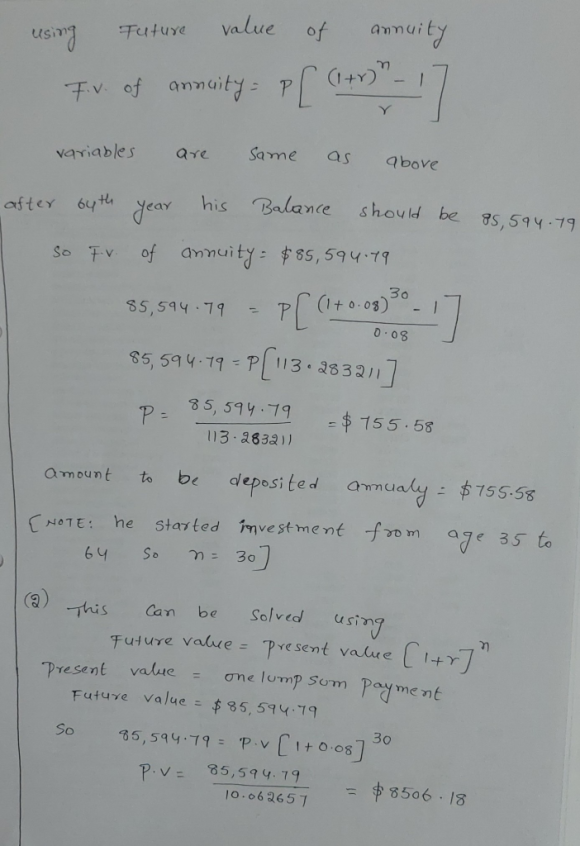 using Future value of annuity
F.V. of annuity = P[ (1+r)^n - 1 / r ]
variables are same as above
after 64th year his Balance should be 85,594.79
So F.V of annuity = $85,594.79
85,594.79 = P[ (1+0.08)^30 - 1 / 0.08 ]
85,594.79 = P[113.283211]
P = 85,594.79 / 113.283211 = $755.58
amount to be deposited annualy = $755.58
[NOTE: he started investment from age 35 to
64 So n = 30]
(2) This can be solved using
Future value = present value [1+r]^n
Present value = one lump sum payment
Future value = $85,594.79
So 85,594.79 = P.V [1+0.08]^30
P.V = 85,594.79 / 10.062657 = $8506.18